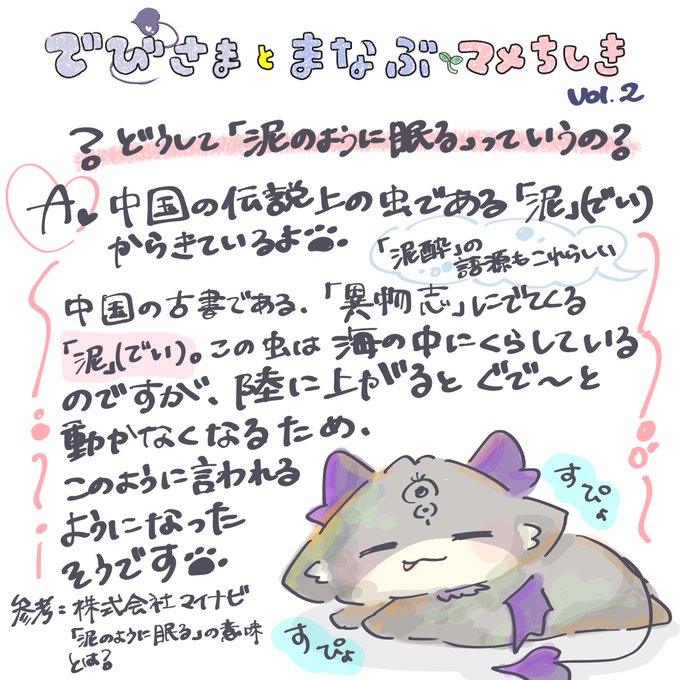 でびさまとまなぶマメちしき
vol.2
?どうして「泥のように眠る」っていうの?
A♥中国の伝説上の虫である「泥」(でい)
からきているよ
「泥酔」の
語源もこれらしい
中国の古書である、「異物志」にでてくる
「泥」(でい)。この虫は海の中にくらしている
のですが、陸に上がるとぐで〜と
動かなくなるため、
このように言われる
ようになった
そうです
すぴょ
すぴょ
参考:株式会社マイナビ
「泥のように眠る」の意味
とは?